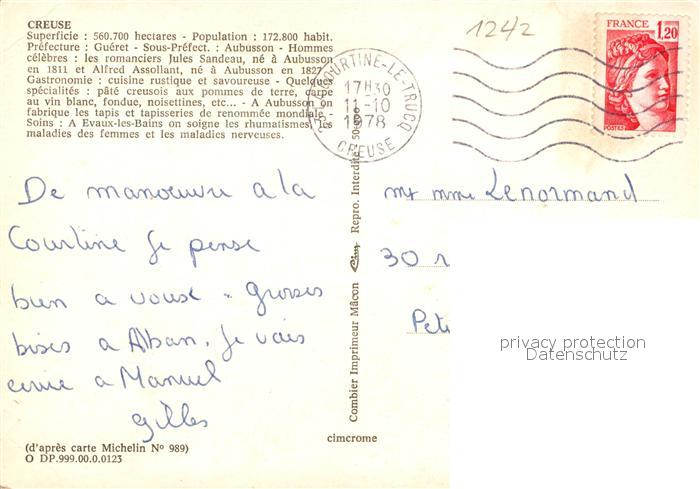 CREUSE
Superficie : 560.700 hectares - Population : 172.800 habit.
Préfecture : Guéret - Sous-Préfect. : Aubusson - Hommes
célèbres : les romanciers Jules Sandeau, né à Aubusson
en 1811 et Alfred Assollant, né à Aubusson en 1827
Gastronomie : cuisine rustique et savoureuse - Quelques
spécialités : pâté creusois aux pommes de terre,
au vin blanc, fondue, noisettines, etc... - A Aubusson on
fabrique les tapis et tapisseries de renommée mondiale -
Soins : A Evaux-les-Bains on soigne les rhumatismes, les
maladies des femmes et les maladies nerveuses.
1242
COURTINE-LE-TRUCQ
17H30
11-10
1978
CREUSE
FRANCE
1,20
POSTES
De manœuvre a la
Courtine Je pense
bien a vous. Grosses
bises a Alban. Je vais
a Manuel
Gilles
(d'après carte Michelin Nº 989)
O DP.999.00.0.0123
Combier Imprimeur Mâcon Cim Repro. Interdite
cimcrome
Mr Mme Lenormand
30 r
Pet
privacy protection
Datenschutz